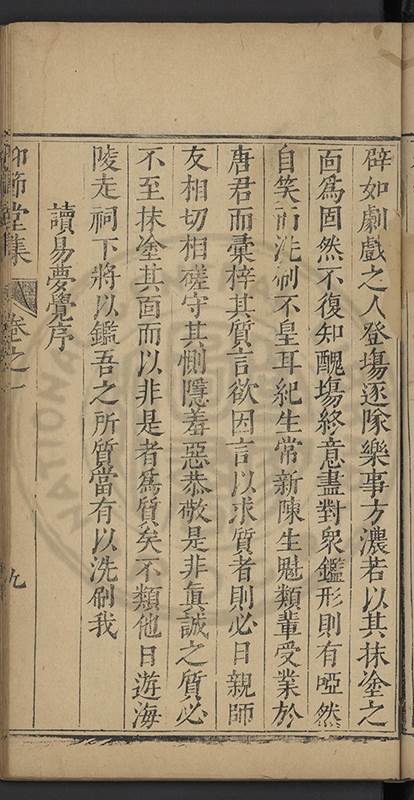 辟如劇戲之人登塲逐隊樂事方濃若以其抹塗之
靣為固然不復知醜塲終意盡對衆鑑形則有啞然
自笑而洗刷不皇耳紀生常新陳生魁類輩受業於
唐君而彚梓其質言欲因言以求質者則必日親師
友相切相磋守其惻隱羞惡恭敬是非眞誠之質必
不至抹塗其靣而以非是者為質矣不類他日遊海
陵走祠下將以鑑吾之所質當有以洗刷我
讀易夢覺序
仰節堂集
卷之一
九